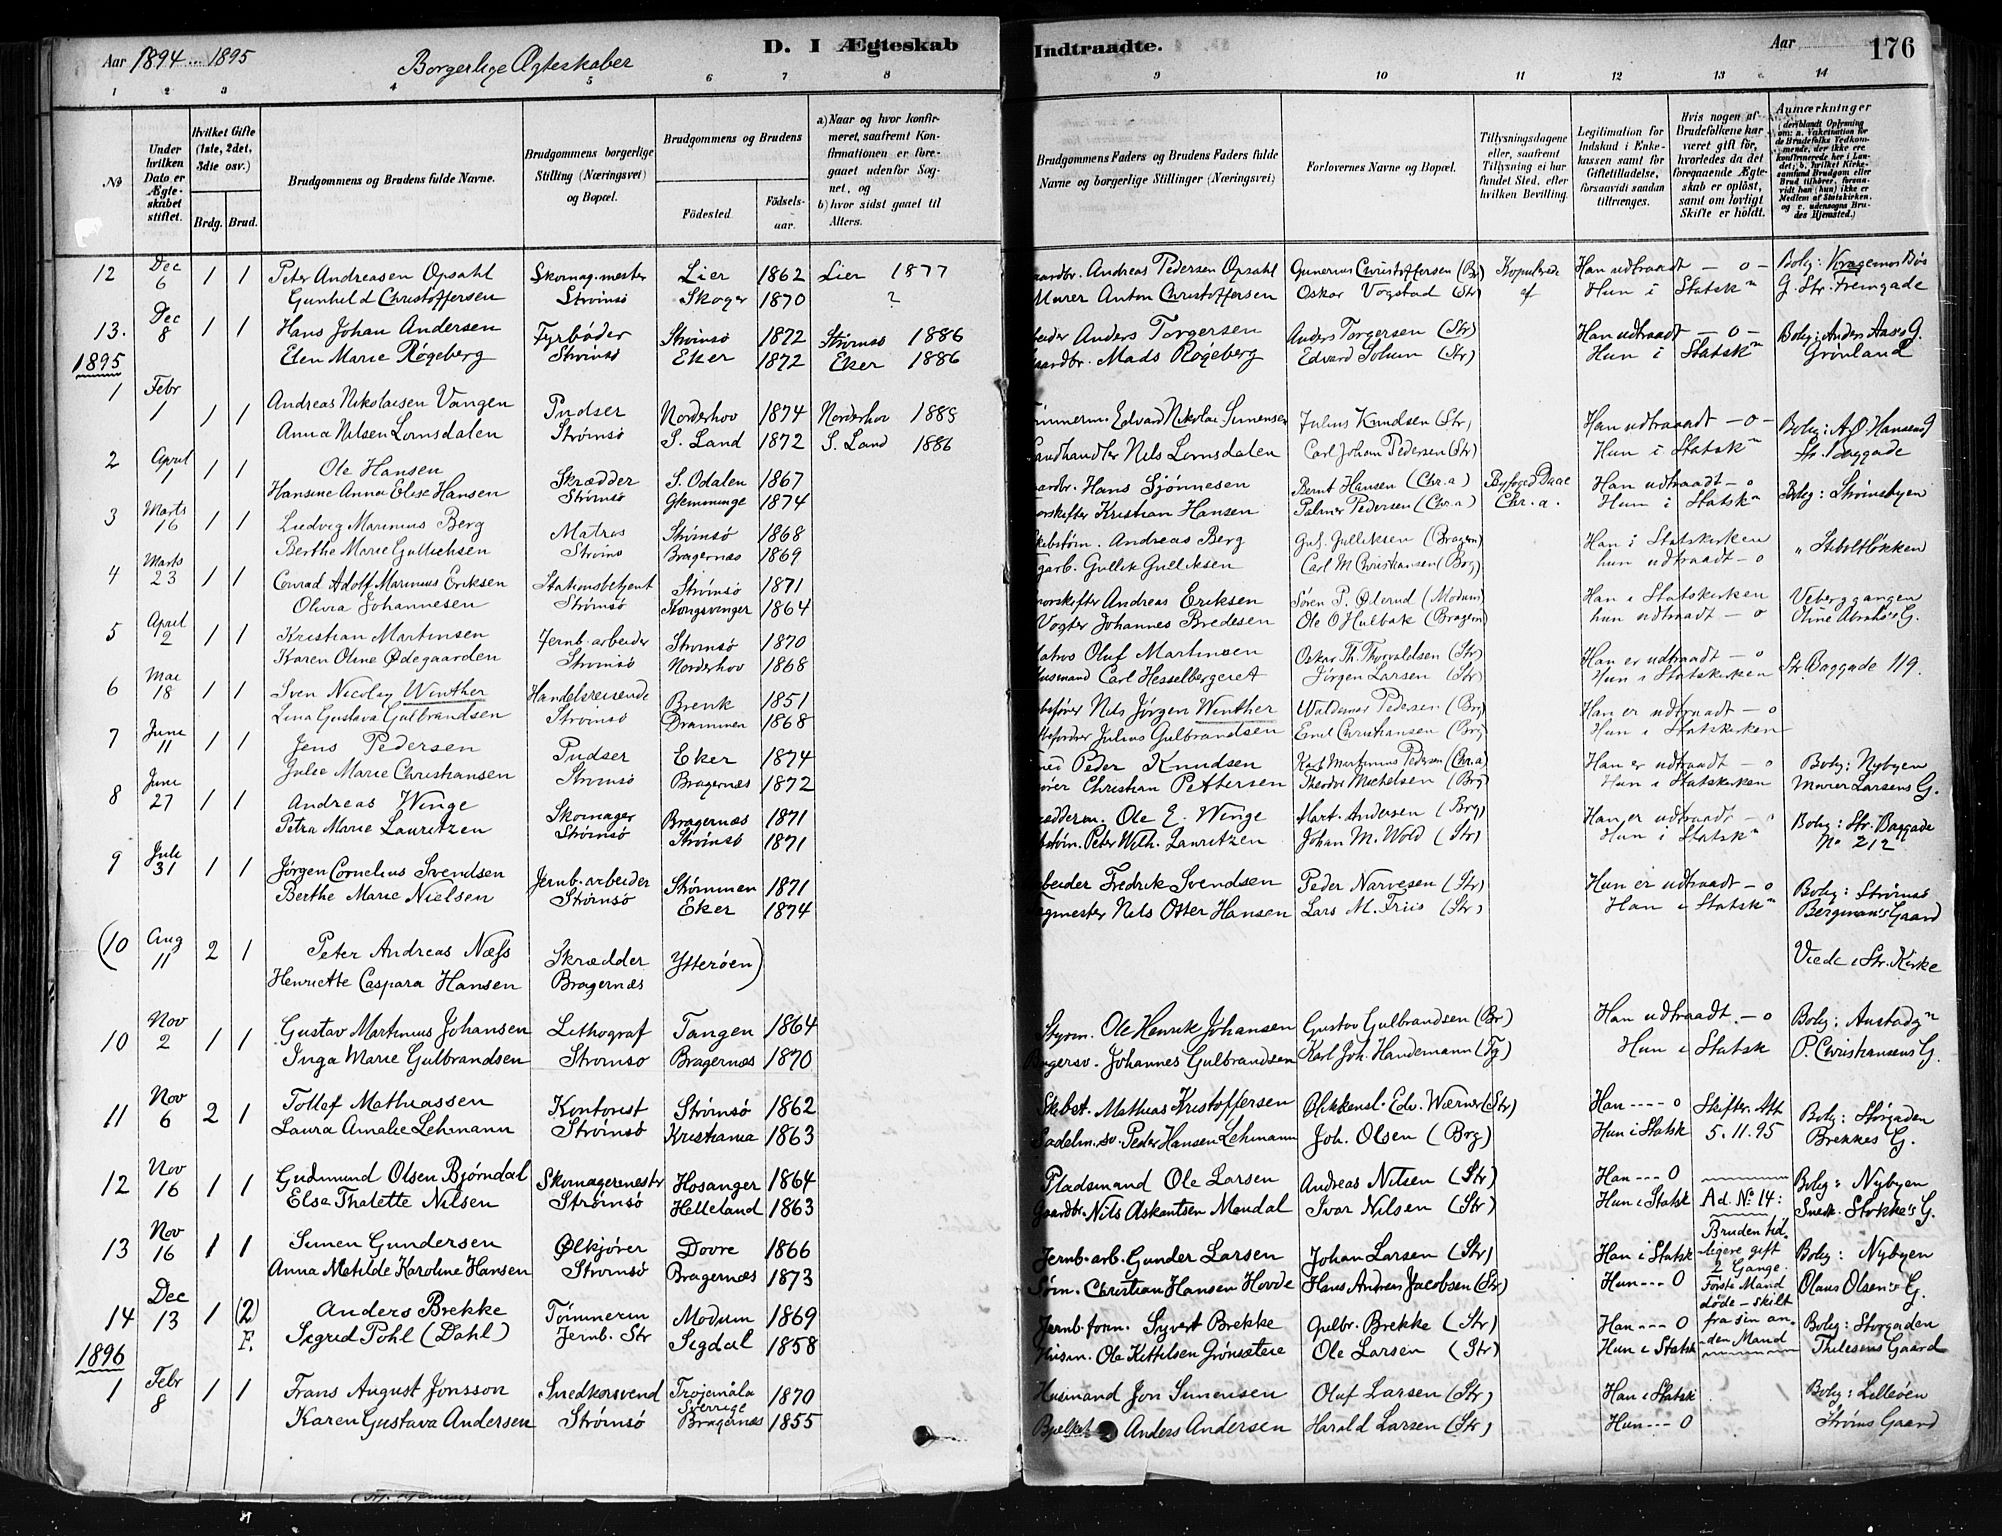 Aar 1894 ... 1895 Borgerlige Ægteskaber D. I Ægteskab Indtraadte. Aar 176
1 2 3 4 5 6 7 8 9 10 11 12 13 14
No
Under hvilken Dato er Ægteskabet stiftet.
Hvilket Gifte (1ste, 2det, 3die osv.)
Brdg. Brud.
Brudgommens og Brudens fulde Navne.
Brudgommens borgerlige Stilling (Næringsvei) og Bopæl.
Brudgommens og Brudens
Födested. Födsels-aar.
a) Naar og hvor konfirmeret, saafremt Konfirmationen er foregaaet udenfor Sognet, og
b) hvor sidst gaaet til Alters.
Brudgommens Faders og Brudens Faders fulde Navne og borgerlige Stillinger (Næringsvei)
Forlovernes Navne og Bopæl.
Tillysningsdagene eller, saafremt Tillysning ei har fundet Sted, efter hvilken Bevilling.
Legitimation for Indskud i Enkekassen samt for Giftetilladelse, forsaavidt saadan tiltrænges.
Hvis nogen af Brudefolkene har været gift för, hvorledes da det foregaaende Ægteskab er oplöst, samt om lovligt Skifte er holdt.
Anmærkninger
12 Dec 6 1 1 Peter Andreasen Opsahl Skomag.mester Lier 1862 Lier 1877 Andreas Pedersen Opsahl Gunerius Christoffersen (Br) Kopulerede Han udtraadt — o —
Gunhild Christoffersen Strömsö Skoger 1870 ? Murer Anton Christoffersen Oskar Vogstad (Str) af Hun i Statsk G. Str. Tremgade
13. Dec 8 1 1 Hans Johan Andersen Fyrböder Strömsö 1872 Strömsö 1886 Anders Torgersen Anders Torgersen (Str) Han udtraadt — o — Bolig: Anders Aas's G.
Elen Marie Røgeberg Strömsö Eker 1872 Eker 1886 Mads Rogeberg Edvard Solum (Str) Hun i Statsk Grønland
1895
1 Febr 1 1 1 Andreas Nikolaisen Vangen Pudser Norderhov 1874 Norderhov 1889 Edvard Nikolai Simensen Julius Knudsen (Str) Han udtraadt — o — Bolig: A Ø Hansens G
Anna Nilsen Lomsdalen Strømsö S. Land 1872 S. Land 1886 Landhandler Nils Lomsdalen Carl Johan Pedersen (Str) Hun i Statsk Str. Baggade
2 April 1 1 1 Ole Hansen Skrædder S. Odalen 1867 Hans Sjönnesen Bernt Hansen (Chr.a) Byfoged Daae Han udtraadt — o Bolig: Strömsbyen
Hansine Anna Elise Hansen Strömsö Glemminge 1874 Kristian Hansen Palmer Pedersen (Chr.a) Chr.a. Hun i Statsk
3 Marts 16 1 1 Ludvig Marinius Berg Matros Strömsö 1868 Andreas Berg Gul. Gulliksen (Bragern) Han i Statskirken
Berthe Marie Gullichsen Strömsö Bragernæs 1869 Gullik Gulliksen Carl M Christiansen (Brg) hun udtraadt — o
4 Marts 23 1 1 Conrad Adolf Marinius Eriksen Stationsbetjent Strömsö 1871 Andreas Eriksen Søren P. Øderud (Modum) Han i Statskirken Veberggangen
Olivia Johannesen Strömsö Kongsvinger 1864 Vogter Johannes Bredesen Ole O Hulbak (Bragern) hun udtraadt — o
5 April 2 1 1 Kristian Martinsen Jernb. arbeider Strömsö 1870 Matros Oluf Martinsen Oskar Th. Thorvaldsen (Str) Han er udtraadt — o Str. Baggade 119.
Karen Oline Ødegaarden Strömsö Norderhov 1868 Husmand Carl Hesselbergeret Jörgen Larsen (Str) Hun i Statskirken
6 Mai 18 1 1 Sven Nicolay Winther Handelsreisende Brevik 1851 Nils Jörgen Winther Waldemar Pedersen (Brg) Han er udtraadt — o
Lina Gustava Gulbrandsen Strömsö Drammen 1868 Julius Gulbrandsen Emil Christiansen (Brg) Hun i Statskirken
7 June 11 1 1 Jens Pedersen Pudser Eker 1874 Peder Knudsen Karl Martinius Pedersen (Chr.a) Han er udtraadt — o Bolig: Nybyen
Julie Marie Christiansen Strömsö Bragernæs 1872 Christian Pettersen Theodor Michelsen (Brg) Hun i Statskirken Murer Larsens G.
8 Juni 27 1 1 Andreas Winge Skomager Bragernæs 1871 Ole E. Winge Mart. Andersen (Brg) Han er udtraadt — o Bolig: Str. Baggade
Petra Marie Lauritzen Strömsö Strömsö 1871 Peter Wilh. Lauritzen Johan M. Wold (Str) Hun i Statsk No 212
9 Juli 31 1 1 Jörgen Cornelius Svendsen Jernb. arbeider Strömmen 1871 Arbeider Fredrik Svendsen Peder Narvesen (Str) Hun er udtraadt — o Bolig: Strömsö
Berthe Marie Nielsen Strömsö Eker 1874 Nils Otter Hansen Lars M. Friis (Str) Han i Statsk Bergman's Gaard
(10 Aug 11 2 1 Peter Andreas Næss Skrædder Ytteröen) Viede i Str. Kirke
Henriette Caspara Hansen Bragernæs
10 Nov 2 1 1 Gustav Martinius Johansen Lithograf Tangen 1864 Styrm. Ole Henrik Johansen Gustav Gulbrandsen (Br) Han udtraadt — o Bolig: Austadgn
Inga Marie Gulbrandsen Strömsö Bragernæs 1870 Johannes Gulbrandsen Karl Joh. Handemann (Tg) Hun i Statsk P. Christiansens G.
11 Nov 6 2 1 Tollef Mathiassen Kontorist Strömsö 1862 Mathias Kristoffersen Edv. Wærner (Str) Han ---- o Skifter. Att Bolig: Storgaden
Laura Amalie Lehmann Strømsö Kristiania 1863 Sadelm.sv. Peder Hansen Lehmann Joh. Olsen (Brg) Hun i Statsk 5.11.95 Brekkes G.
12 Nov 16 1 1 Gudmund Olsen Bjørndal Skomagermestr Hosanger 1864 Pladsmand Ole Larsen Andreas Nilsen (Str) Han --- O Bolig: Nybyen
Else Thalette Nilsen Strømsö Helleland 1863 Gaardbr. Nils Askantsen Mendal Ivar Nilsen (Str) Hun i Statsk Ad. No 14: Snedk. Stokke's G.
13 Nov 16 1 1 Simen Gundersen Ølkjører Dovre 1866 Jernb. arb. Gunder Larsen Johan Larsen (Str) Han i Statsk Bruden tidligere gift 2 Gange. Bolig: Nybyen
Anna Matilde Karoline Hansen Strömsö Bragernæs 1873 Christian Hansen Hovde Hans Andreas Jacobsen (Str) Hun --- O Første Mand døde — skilt Olaus Olsens G.
14 Dec 13 1 (2) Anders Brekke Tömmerm Modum 1869 Jernb.form. Syvert Brekke Gulbr. Brekke (Str) Han --- O fra sin an- Bolig: Storgaden
F. Sigrid Pohl (Dahl) Jernb. Str Sigdal 1858 Husm. Ole Kittilsen Grønsæteie Ole Larsen (Str) Hun i Statsk den Mand Thilesens Gaard
1896
1 Febr 8 1 1 Frans August Jonsson Snedkersvend Trojemåla Sverrige 1870 Husmand Jon Simensen Oluf Larsen (Str) Han i Statsk Bolig: Lilleöen
Karen Gustava Andersen Strømsö Bragernæs 1855 Anders Andersen Harald Larsen (Str) Hun --- O Ströms Gaard